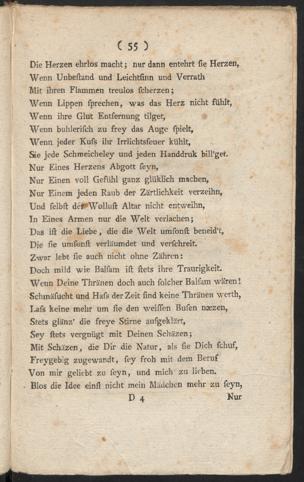 ( 55 )
Die Herzen ehrlos macht; nur dann entehrt ſie Herzen,
Wenn Unbeſtand und Leichtſinn und Verrath
Mit ihren Flammen treulos ſcherzen;
Wenn Lippen ſprechen, was das Herz nicht fühlt,
Wenn ihre Glut Entfernung tilget,
Wenn buhleriſch zu frey das Auge ſpielt,
Wenn jeder Kuſs ihr Irrlichtsfeuer kühlt,
Sie jede Schmeicheley und jeden Handdruk bill'get.
Nur Eines Herzens Abgott ſeyn,
Nur Einen voll Gefühl ganz glüklich machen,
Nur Einem jeden Raub der Zärtlichkeit verzeihn,
Und ſelbſt der Wolluſt Altar nicht entweihn,
In Eines Armen nur die Welt verlachen;
Das iſt die Liebe, die die Welt umſonſt beneid't,
Die ſie umſonſt verläumdet und verſchreit.
Zwar lebt ſie auch nicht ohne Zähren:
Doch mild wie Balſam iſt ſtets ihre Traurigkeit.
Wenn Deine Thränen doch auch ſolcher Balſam wären!
Schmäſucht und Haſs der Zeit ſind keine Thränen werth,
Laſs keine mehr um ſie den weiſſen Buſen næzen,
Stets glänz' die freye Stirne aufgeklärt,
Sey ſtets vergnügt mit Deinen Schäzen;
Mit Schäzen, die Dir die Natur, als ſie Dich ſchuf,
Freygebig zugewandt, ſey froh mit dem Beruf
Von mir geliebt zu ſeyn, und mich zu lieben.
Blos die Idee einſt nicht mein Mädchen mehr zu ſeyn,
D 4 Nur